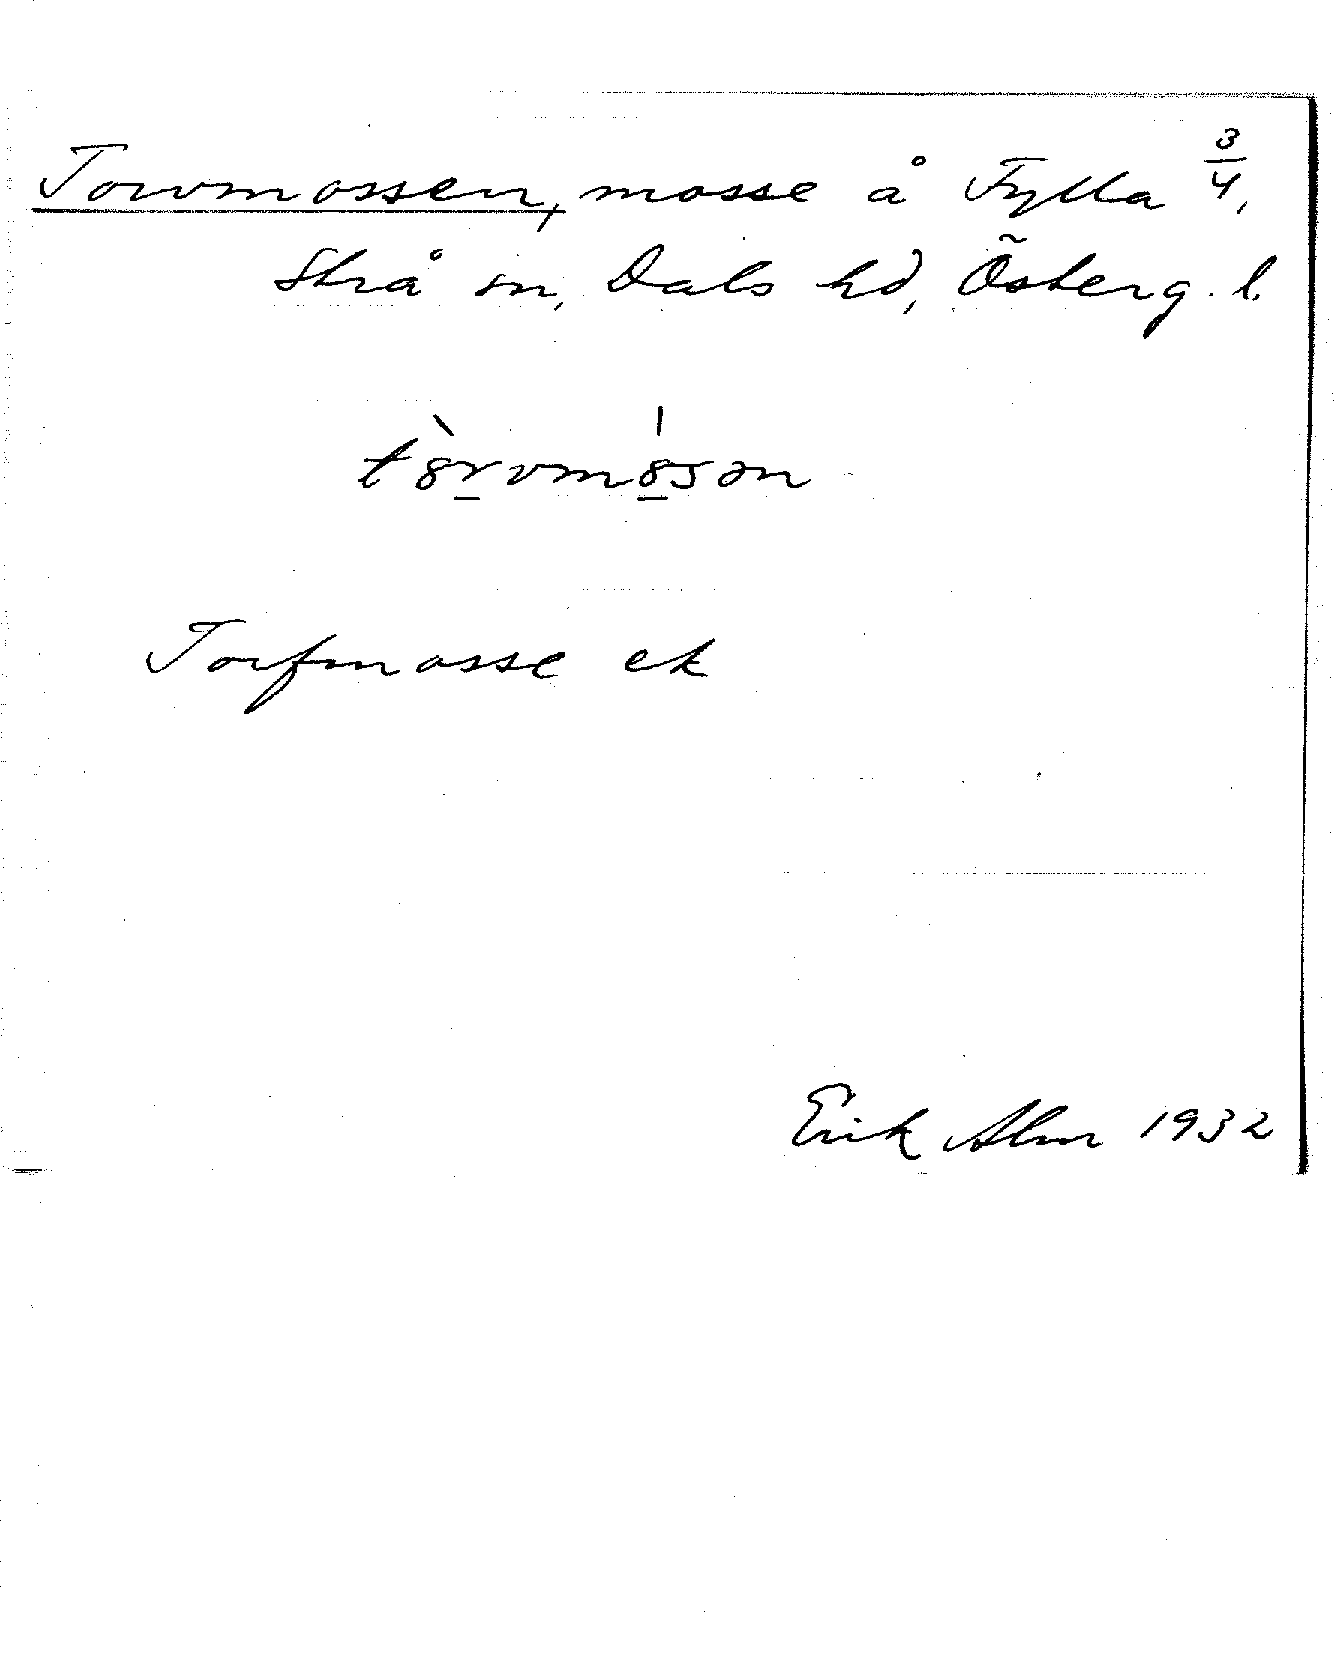 Torvmossen, mosse å Fylla 3/4,
Strå sn, Dals hd, Österg. l.
t8̀rvm8́sən
Torfmosse ek
Erik Alm 1932